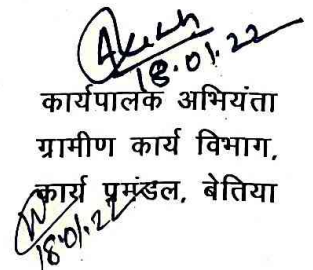 18.01.22
कार्यपालक अभियंता
ग्रामीण कार्य विभाग,
कार्य प्रमंडल, बेतिया
18.01.22